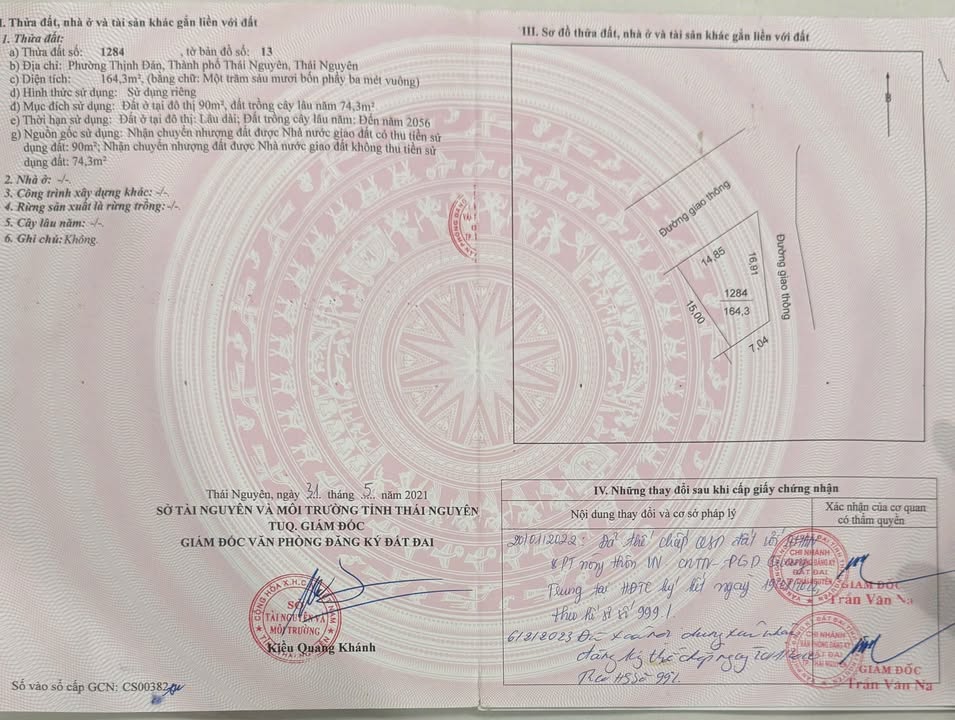 I. Thửa đất, nhà ở và tài sản khác gắn liền với đất
1. Thửa đất:
a) Thửa đất số: 1284 , tờ bản đồ số: 13
b) Địa chỉ: Phường Thịnh Đán, Thành phố Thái Nguyên, Thái Nguyên
c) Diện tích: 164,3m², (bằng chữ: Một trăm sáu mươi bốn phẩy ba mét vuông)
d) Hình thức sử dụng: Sử dụng riêng
đ) Mục đích sử dụng: Đất ở tại đô thị 90m², đất trồng cây lâu năm 74,3m²
e) Thời hạn sử dụng: Đất ở tại đô thị: Lâu dài; Đất trồng cây lâu năm: Đến năm 2056
g) Nguồn gốc sử dụng: Nhận chuyển nhượng đất được Nhà nước giao đất có thu tiền sử
dụng đất: 90m²; Nhận chuyển nhượng đất được Nhà nước giao đất không thu tiền sử
dụng đất: 74,3m²
2. Nhà ở: -/-.
3. Công trình xây dựng khác: -/-.
4. Rừng sản xuất là rừng trồng: -/-.
5. Cây lâu năm: -/-.
6. Ghi chú: Không.
Thái Nguyên, ngày 31 tháng 5 năm 2021
SỞ TÀI NGUYÊN VÀ MÔI TRƯỜNG TỈNH THÁI NGUYÊN
TUQ. GIÁM ĐỐC
GIÁM ĐỐC VĂN PHÒNG ĐĂNG KÝ ĐẤT ĐAI
SỞ
TÀI NGUYÊN VÀ
MÔI TRƯỜNG
Kiều Quang Khánh
Số vào sổ cấp GCN: CS00382
III. Sơ đồ thửa đất, nhà ở và tài sản khác gắn liền với đất
B
Đường giao thông
14,85
16,81
Đường giao thông
1284
164,3
15,00
7,04
IV. Những thay đổi sau khi cấp giấy chứng nhận
Nội dung thay đổi và cơ sở pháp lý
Xác nhận của cơ quan
có thẩm quyền
Đã thế chấp QSD đất với
PT nông thôn VN CNTN - PGD Quang
Trung tại HĐTC ký kết ngày
theo hồ sơ số 999.
CHI NHÁNH
VĂN PHÒNG ĐĂNG KÝ
ĐẤT ĐAI
TP. THÁI NGUYÊN
GIÁM ĐỐC
Trần Văn Na
6/2/2023 Đã xóa nội dung xác nhận
đăng ký thế chấp ngày
Theo HS số 991.
CHI NHÁNH
VĂN PHÒNG ĐĂNG KÝ
ĐẤT ĐAI
TP. THÁI NGUYÊN
GIÁM ĐỐC
Trần Văn Na